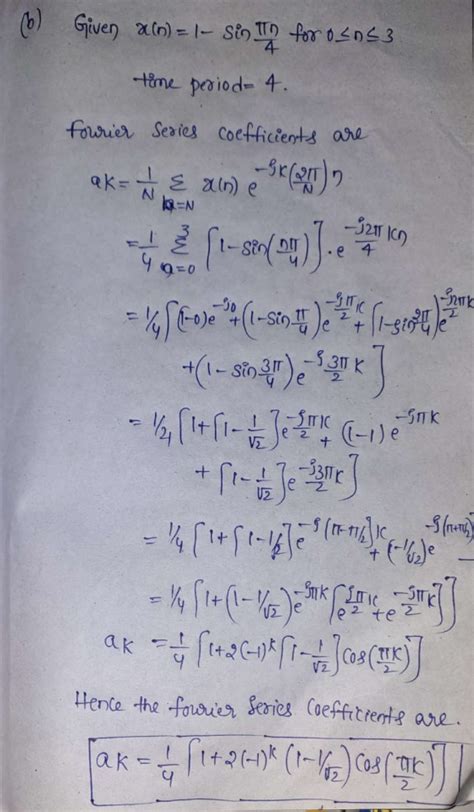 (b) Given x(n) = 1 - sin πn/4 for 0≤n≤3
time period = 4.
Fourier Series coefficients are
ak = 1/N Σ n=N x(n) e^-jk(2π/N)n
= 1/4 Σ n=0 3 [1-sin(nπ/4)].e^-j2π/4 kn
= 1/4 [(1-0)e^-j0 + (1-sin π/4)e^-jπ/2 k + [1-sin 2π/4)e^-j2πk/2
+ (1-sin 3π/4) e^-j3π/2 k]
= 1/4 [1+[1-1/√2]e^-jπ/2 k + (1-1)e^-jπk
+ [1-1/√2]e^-j3πk/2]
= 1/4 [1+[1-1/√2]e^-j(π-π/2)k + (1-1/√2)e^-j(π+π/2)
= 1/4 [1+(1-1/√2)e^-jπk [e^jπ/2 k + e^-jπ/2 k]]
ak = 1/4 [1+2(-1)^k [1-1/√2] cos(πk/2)]
Hence the fourier Series coefficients are.
ak = 1/4 [1+2(-1)^k (1-1/√2) cos(πk/2)]